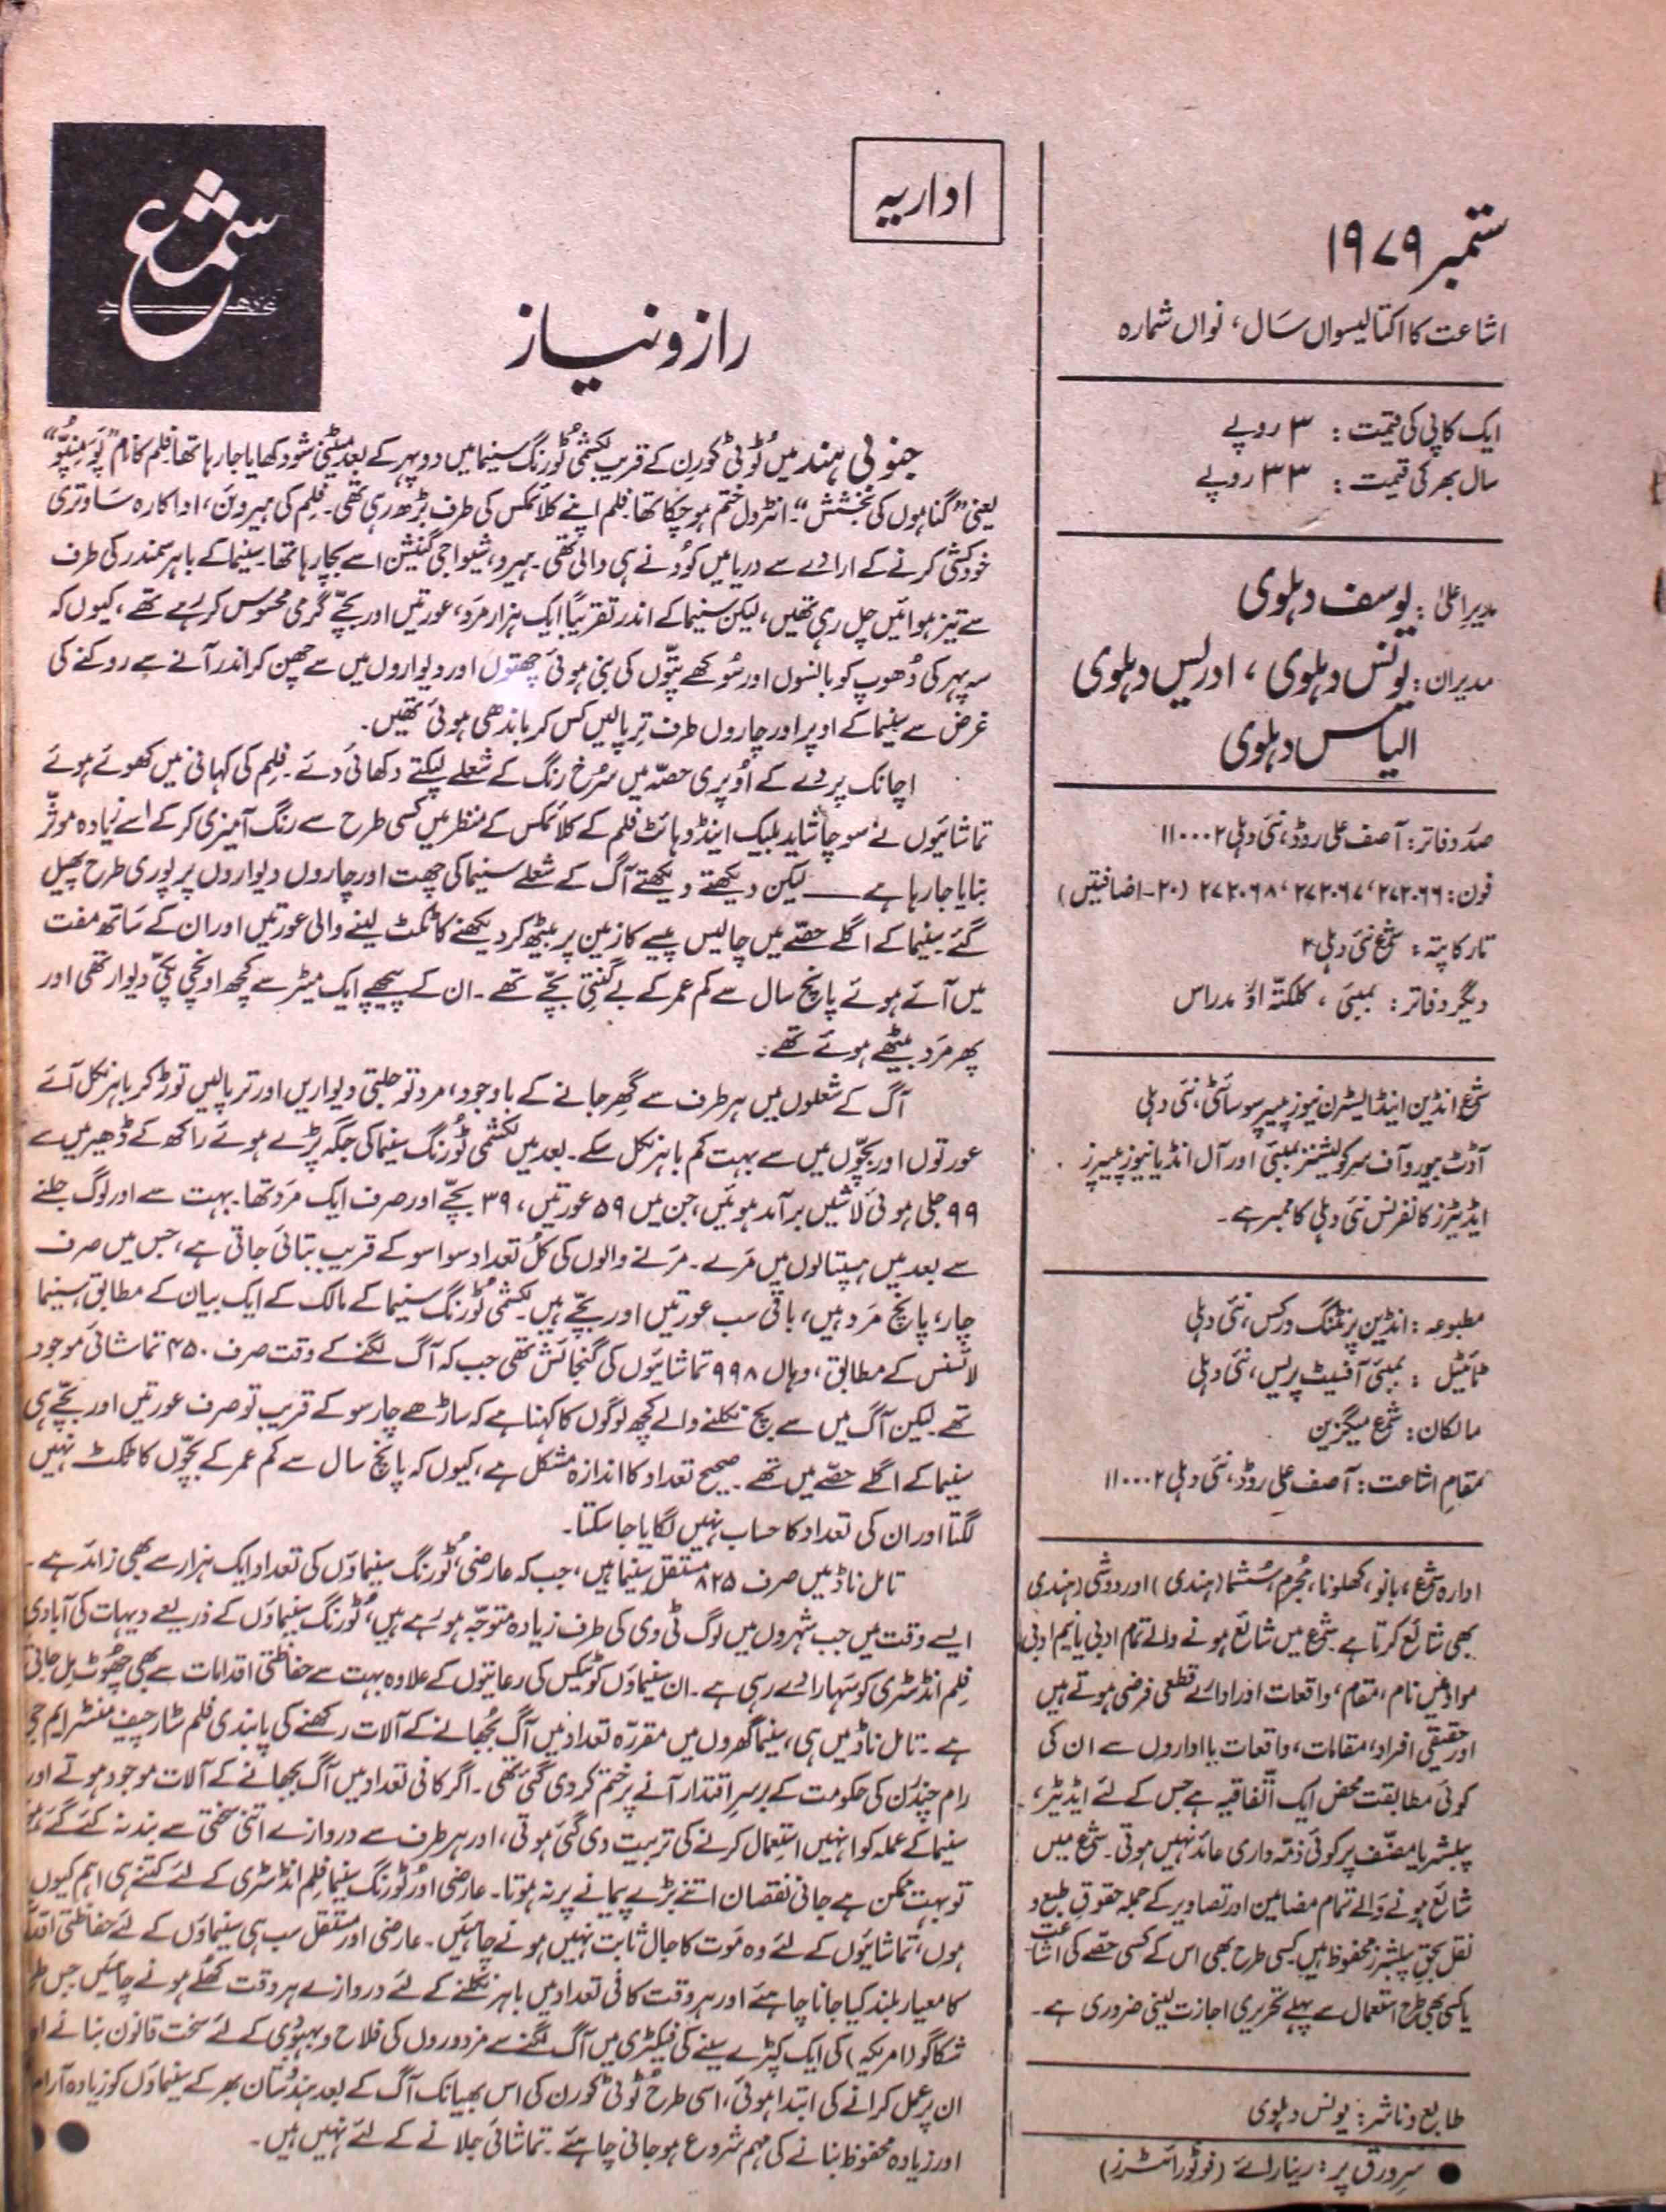 ستمبر ۱۹۷۹
اشاعت کا اکتالیسواں سال، نواں شمارہ
ایک کاپی کی قیمت: ۳ روپے
سال بھر کی قیمت: ۳۳ روپے
مدیر اعلیٰ: یوسف دہلوی
مدیران: یونس دہلوی، ادریس دہلوی
الیاس دہلوی
صدر دفاتر: آصف علی روڈ، نئی دہلی ۱۱۰۰۰۲
فون: ۲۷۲۰۶۶، ۲۷۲۰۶۷، ۲۷۲۰۶۸ (۲۰-اضافتیں)
تار کا پتہ: شمع نئی دہلی ۲
دیگر دفاتر: بمبئی، کلکتہ اور مدراس
شمع انڈین اینڈ ایسٹرن نیوز پیپر سوسائٹی، نئی دہلی
آڈٹ بیورو آف سرکولیشنز بمبئی اور آل انڈیا نیوز پیپرز
ایڈیٹرز کانفرنس نئی دہلی کا ممبر ہے۔
مطبوعہ: انڈین پرنٹنگ ورکس، نئی دہلی
ٹائیٹل: بمبئی آفسیٹ پریس، نئی دہلی
مالکان: شمع میگزین
مقام اشاعت: آصف علی روڈ، نئی دہلی ۱۱۰۰۰۲
ادارہ شمع، بانو، کھلونا، مجرم، سُشما (ہندی) اور دوشی (ہندی
بھی شائع کرتا ہے۔ شمع میں شائع ہونے والے تمام ادبی یا نیم ادبی
مواد میں نام، مقام، واقعات اور ادارے قطعی فرضی ہوتے ہیں
اور حقیقی افراد، مقامات، واقعات یا اداروں سے ان کی
کوئی مطابقت محض ایک اتّفاقیہ ہے جس کے لئے ایڈیٹر،
پبلشر یا مصنّف پر کوئی ذمّہ داری عائد نہیں ہوتی۔ شمع میں
شائع ہونے والے تمام مضامین اور تصاویر کے جملہ حقوقِ طبع و
نقل بحقِ پبلشرز محفوظ ہیں۔ کسی طرح بھی اس کے کسی حصّے کی اشاعت
یا کسی بھی طرح استعمال سے پہلے تحریری اجازت لینی ضروری ہے۔
طابع و ناشر: یونس دہلوی
● سرورق پر: رینا رائے (فوٹو رائٹرز)
اداریہ
شمع
نئی دہلی
راز و نیاز
جنوبی ہند میں ٹُوٹی کورِن کے قریب لکشمی ٹُورنگ سینما میں دوپہر کے بعد میٹنی شو دکھایا جا رہا تھا۔ فلم کا نام
یعنی ”گناہوں کی بخشش“۔ انٹرول ختم ہو چکا تھا۔ فلم اپنے کلائمکس کی طرف بڑھ رہی تھی۔ فلم کی ہیروئن، اداکارہ ساوتری
خودکشی کرنے کے ارادے سے دریا میں کُودنے ہی والی تھی۔ ہیرو، شیواجی گنیشن اسے بچا رہا تھا۔ سینما کے باہر سمندر کی طرف
سے تیز ہوائیں چل رہی تھیں، لیکن سینما کے اندر تقریباً ایک ہزار مرد، عورتیں اور بچّے گرمی محسوس کر رہے تھے، کیوں کہ
سہ پہر کی دُھوپ کو بانسوں اور سُوکھے پتّوں کی بنی ہوئی چھتوں اور دیواروں میں سے چھن کر اندر آنے سے روکنے کی
غرض سے سینما کے اوپر اور چاروں طرف ترپالیں کس کر باندھی ہوئی تھیں۔
اچانک پردے کے اُوپری حصّہ میں سُرخ رنگ کے شعلے لپکتے دکھائی دئے۔ فلم کی کہانی میں کھوئے ہوئے
تماشائیوں نے سوچا شاید بلیک اینڈ وہائٹ فلم کے کلائمکس کے منظر میں کسی طرح سے رنگ آمیزی کر کے اسے زیادہ موثّر
بنایا جا رہا ہے ـــــ لیکن دیکھتے دیکھتے آگ کے شعلے سینما کی چھت اور چاروں دیواروں پر پوری طرح پھیل
گئے۔ سینما کے اگلے حصّے میں چالیس پیسے کا زمین پر بیٹھ کر دیکھنے کا ٹکٹ لینے والی عورتیں اور ان کے ساتھ مفت
میں آئے ہوئے پانچ سال سے کم عمر کے بے گنتی بچّے تھے۔ ان کے پیچھے ایک میٹر سے کچھ اونچی پکّی دیوار تھی اور
پھر مرد بیٹھے ہوئے تھے۔
آگ کے شعلوں میں ہر طرف سے گِھر جانے کے باوجود، مرد تو جلتی دیواریں اور ترپالیں توڑ کر باہر نکل آئے
عورتوں اور بچّوں میں سے بہت کم باہر نکل سکے۔ بعد میں لکشمی ٹُورنگ سینما کی جگہ پڑے ہوئے راکھ کے ڈھیر میں سے
۹۹ جلی ہوئی لاشیں برآمد ہوئیں، جن میں ۵۹ عورتیں، ۳۹ بچّے اور صرف ایک مرد تھا۔ بہت سے اور لوگ جلنے
سے بعد میں ہسپتالوں میں مرے۔ مرنے والوں کی کُل تعداد سوا سو کے قریب بتائی جاتی ہے، جس میں صرف
چار، پانچ مرد ہیں، باقی سب عورتیں اور بچّے ہیں۔ لکشمی ٹُورنگ سینما کے مالک کے ایک بیان کے مطابق، سینما
لائسنس کے مطابق، وہاں ۹۹۸ تماشائیوں کی گنجائش تھی جب کہ آگ لگنے کے وقت صرف ۴۵۰ تماشائی موجود
تھے۔ لیکن آگ میں سے بچ نکلنے والے کچھ لوگوں کا کہنا ہے کہ ساڑھے چار سو کے قریب تو صرف عورتیں اور بچّے ہی
سینما کے اگلے حصّے میں تھے۔ صحیح تعداد کا اندازہ مشکل ہے، کیوں کہ پانچ سال سے کم عمر کے بچّوں کا ٹکٹ نہیں
لگتا اور ان کی تعداد کا حساب نہیں لگایا جا سکتا۔
تامل ناڈ میں صرف ۸۲۵ مستقل سینما ہیں، جب کہ عارضی، ٹُورنگ سینماؤں کی تعداد ایک ہزار سے بھی زائد ہے۔
ایسے وقت میں جب شہروں میں لوگ ٹی وی کی طرف زیادہ متوجّہ ہو رہے ہیں، ٹُورنگ سینماؤں کے ذریعے دیہات کی آبادی
فلم انڈسٹری کو سہارا دے رہی ہے۔ ان سینماؤں کو ٹیکس کی رعایتوں کے علاوہ بہت سے حفاظتی اقدامات سے بھی چھُوٹ مل جاتی
ہے۔ تامل ناڈ میں ہی، سینما گھروں میں مقررّہ تعداد میں آگ بُجھانے کے آلات رکھنے کی پابندی فلم سٹار چیف منسٹر ایم جی
رام چندرن کی حکومت کے برسرِ اقتدار آنے پر ختم کر دی گئی تھی۔ اگر کافی تعداد میں آگ بجھانے کے آلات موجود ہوتے اور
سینما کے عملہ کو انہیں استعمال کرنے کی تربیت دی گئی ہوتی، اور ہر طرف سے دروازے اتنی سختی سے بند نہ کئے گئے
تو بہت ممکن ہے جانی نقصان اتنے بڑے پیمانے پر نہ ہوتا۔ عارضی اور ٹُورنگ سینما فلم انڈسٹری کے لئے کتنے ہی اہم کیوں
ہوں، تماشائیوں کے لئے وہ موت کا جال ثابت نہیں ہونے چاہئیں۔ عارضی اور مستقل سب ہی سینماؤں کے لئے حفاظتی
کا معیار بلند کیا جانا چاہئے اور ہر وقت کافی تعداد میں باہر نکلنے کے لئے دروازے ہر وقت کھُلے ہونے چاہئیں۔ جس
شکاگو (امریکہ) کی ایک کپڑے سینے کی فیکٹری میں آگ لگنے سے مزدوروں کی فلاح و بہبودی کے لئے سخت قانون بنانے
ان پر عمل کرانے کی ابتدا ہوئی، اسی طرح ٹُوٹی کورن کی اس بھیانک آگ کے بعد ہندُستان بھر کے سینماؤں کو زیادہ آرام
اور زیادہ محفوظ بنانے کی مہم شروع ہو جانی چاہئے۔ تماشائی جلانے کے لئے نہیں ہیں۔